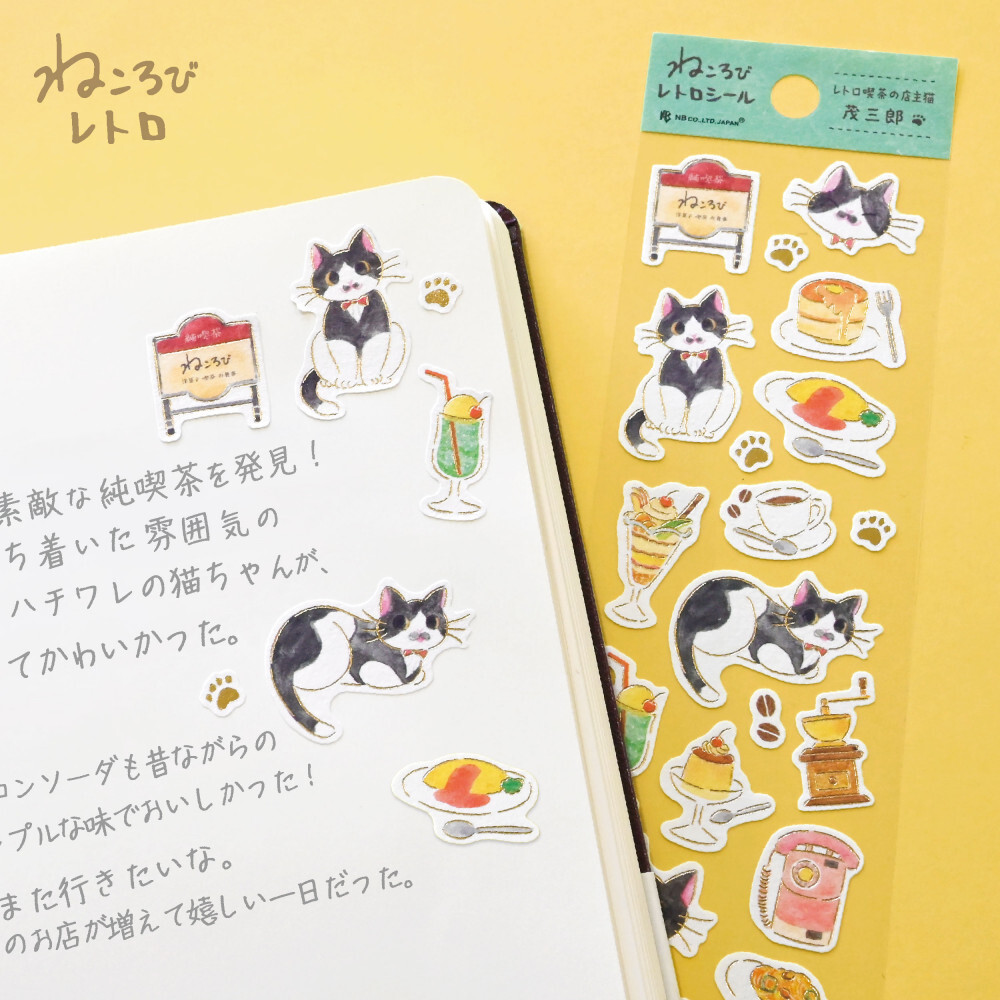 ねころび
レトロ
ねころび
レトロシール
NB CO.,LTD. JAPAN®
レトロ喫茶の店主猫
茂三郎
純喫茶
ねころび
洋菓子・喫茶・お食事
純喫茶
ねころび
洋菓子・喫茶・お食事
素敵な純喫茶を発見！
ち着いた雰囲気の
ハチワレの猫ちゃんが、
てかわいかった。
ロンソーダも昔ながらの
プルな味でおいしかった！
また行きたいな。
のお店が増えて嬉しい一日だった。